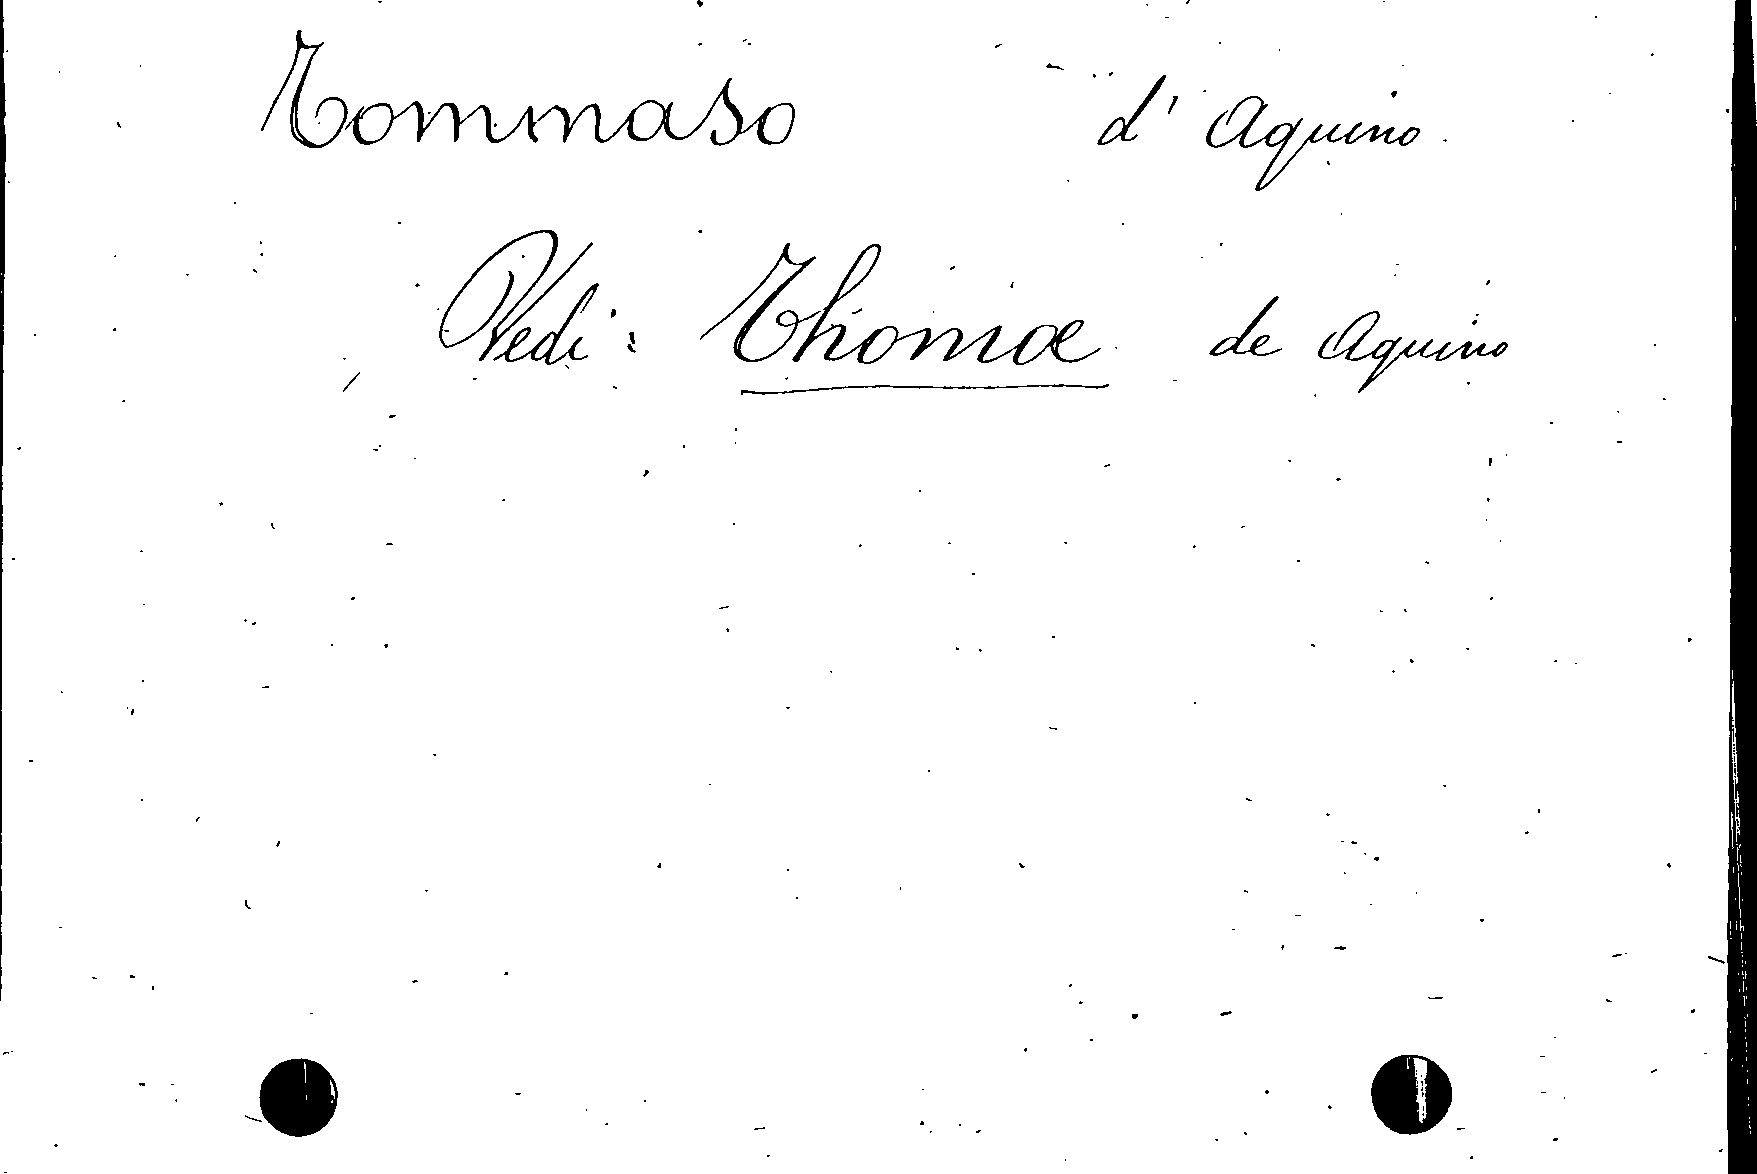 Tommaso d' Aquino
Vedi: Thomae de Aquino